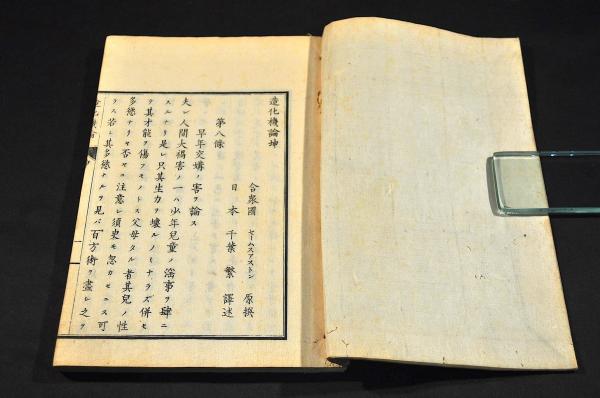 造化機論坤
合衆國 ゼームスアストン 原撰
日本 千葉繁 譯述
第八條
早年交媾ノ害ヲ論ス
夫レ人間大禍害ノ一ハ少年兒童ノ淫事ヲ肆ニ
スルナリ是レ只其生力ヲ壞ルノミナラズ併セ
ヲ其才能ヲ傷フモノトス父母タル者其兒ノ性
多慾ナリヤ否ヤニ注意シ須臾モ忽カセニス可
ラス若シ其多慾ナルヲ見バ百方術ヲ盡シ之ヲ